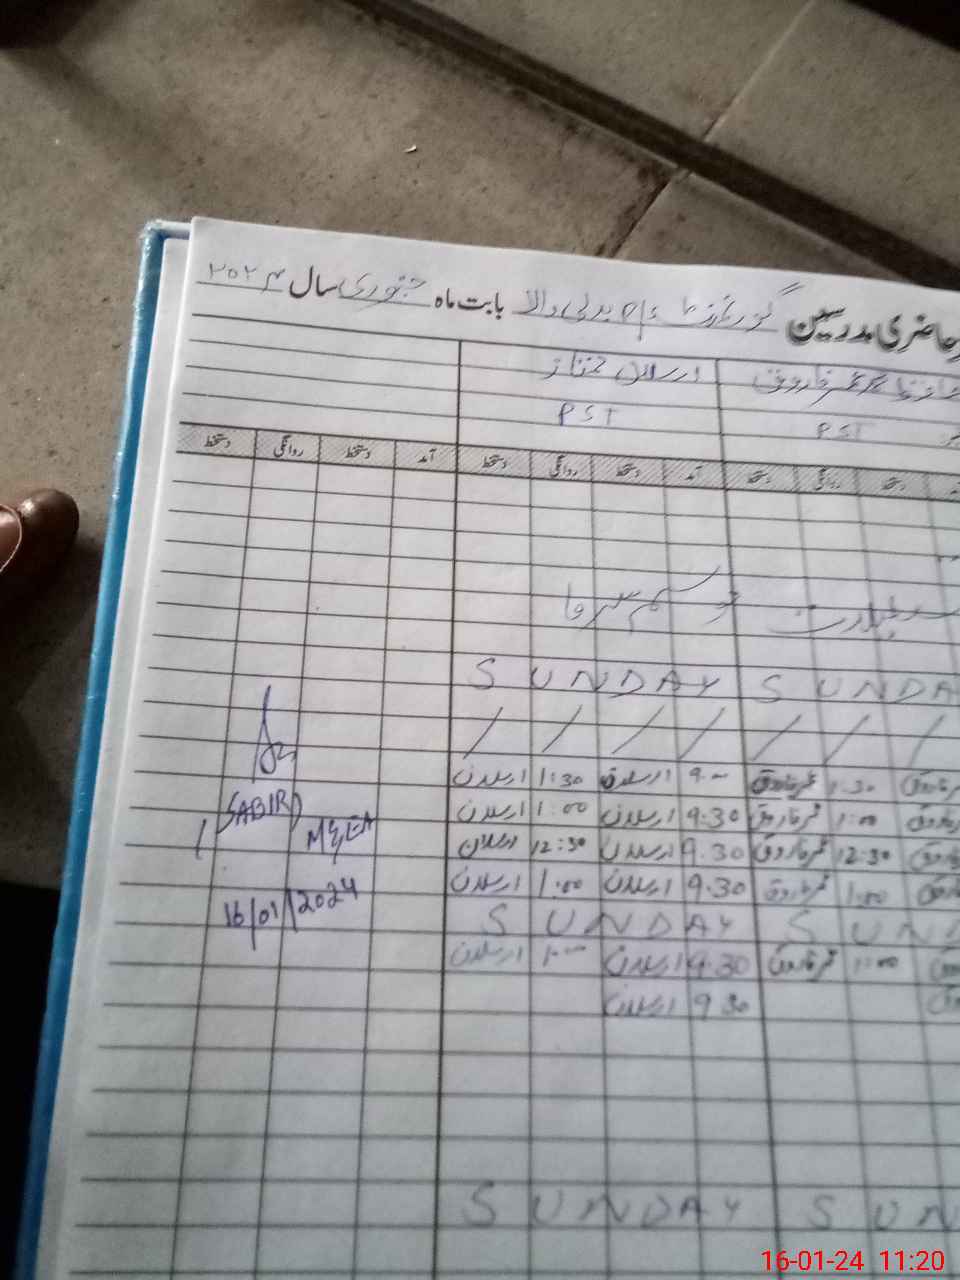 حاضری مدرسین گورنمنٹ p/s بدلی والا بابت ماہ جنوری سال ۲۰۲۴
فاروق ارسلان ممتاز
PST PST
دستخط روانگی دستخط آمد دستخط روانگی دستخط آمد دستخط روانگی دستخط
موسم سرما
SUNDAY SUNDA
9.00 ارسلان 1:30 ارسلان
1:30 عمر فاروق
9.30 ارسلان 1:00 ارسلان
1:00 عمر فاروق
9.30 ارسلان 12:30 ارسلان
12:30 عمر فاروق
9.30 ارسلان 1:00 ارسلان
1:00 عمر فاروق
SUNDAY SUND
9.30 ارسلان 1:00 ارسلان
1:00 عمر فاروق
9.30 ارسلان
SUNDAY SUN
(SABIR)
MEA
16/01/2024
16-01-24 11:20